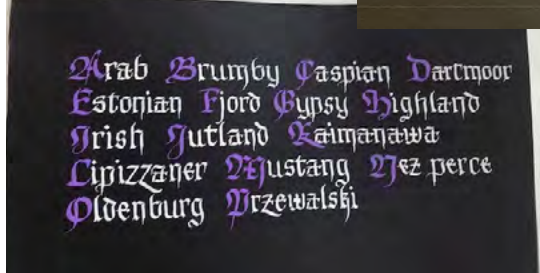 Arab Brumby Caspian Dartmoor
Estonian Fjord Gypsy Highland
Irish Jutland Kaimanawa
Lipizzaner Mustang Nez perce
Oldenburg Przewalski